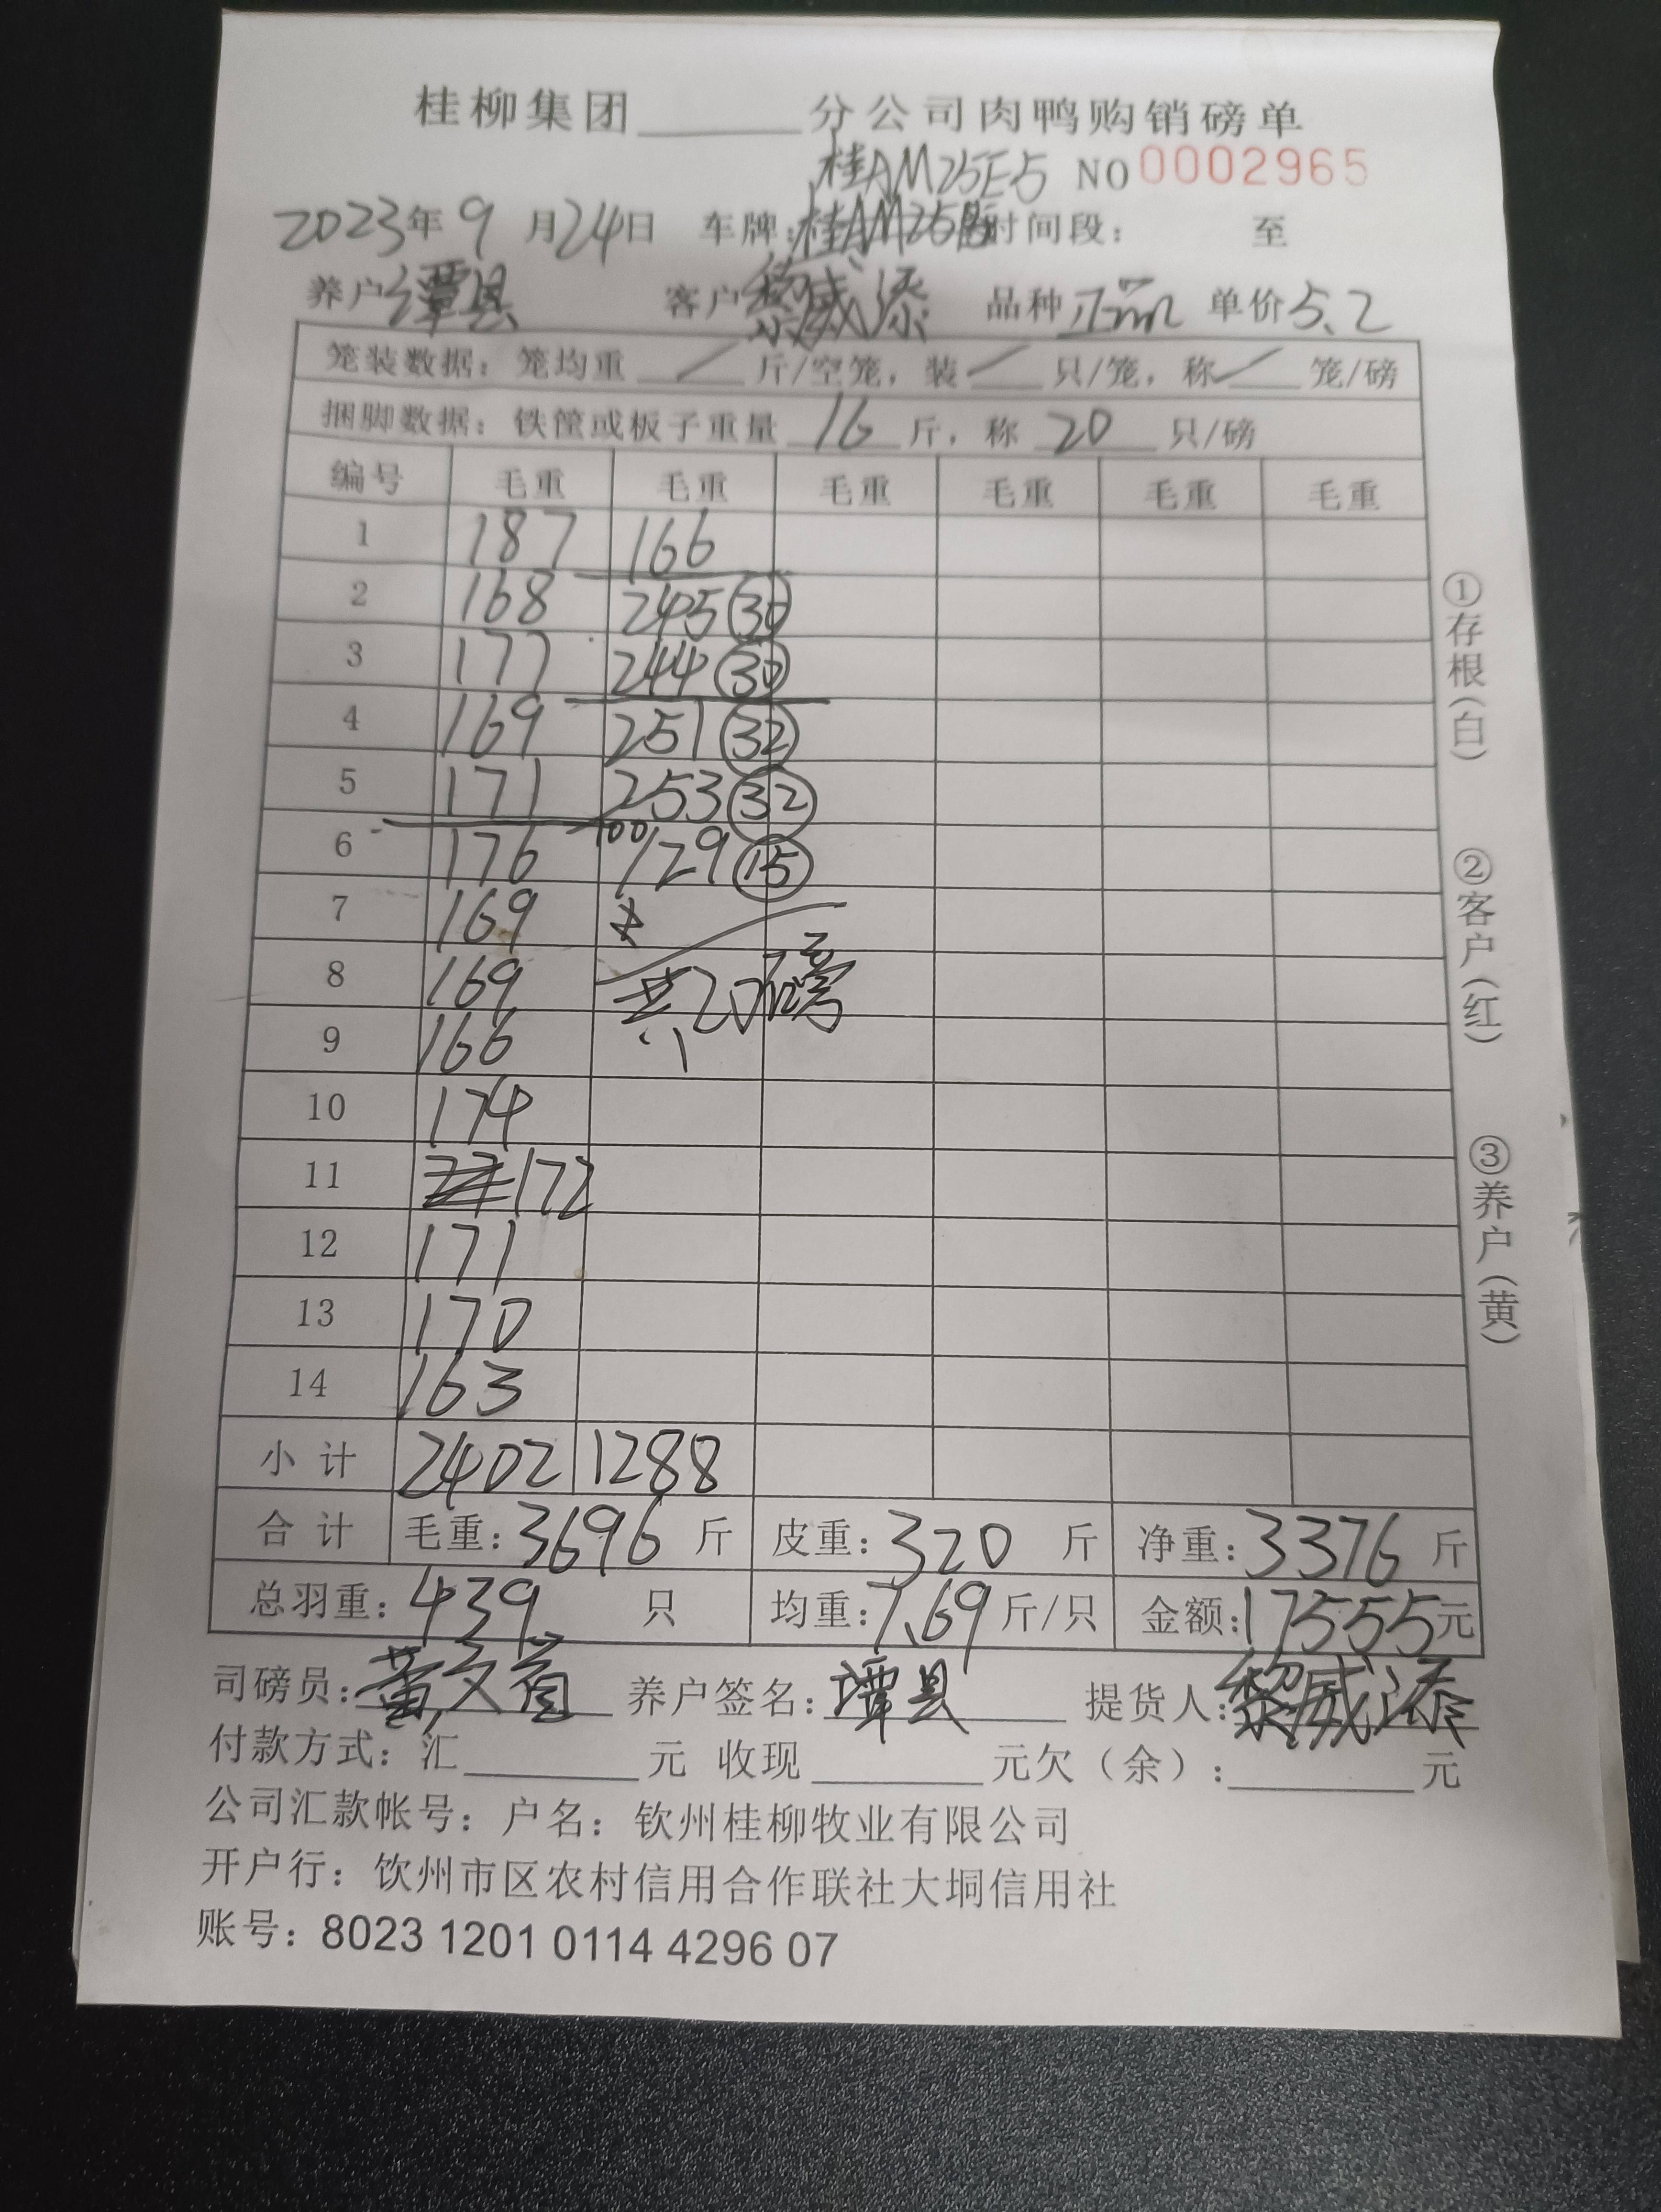 桂柳集团______分公司肉鸭购销磅单
桂AM25E5 NO 0002965
2023年9月24日 车牌:桂AM25 时间段: 至
养户 谭县 客户 黎威添 品种 正品 单价 5.2
笼装数据: 笼均重 / 斤/空笼, 装 / 只/笼, 称 / 笼/磅
捆脚数据: 铁筐或板子重量 16 斤, 称 20 只/磅
编号 毛重 毛重 毛重 毛重 毛重 毛重
1 187 166
2 168 245 (30)
3 177 244 (30)
4 169 251 (32)
5 171 253 (32)
6 176 100 129 (15)
7 169
8 169 共20磅
9 166
10 174
11 172
12 171
13 170
14 163
小计 2402 1288
合计 毛重: 3696 斤 皮重: 320 斤 净重: 3376 斤
总羽重: 439 只 均重: 7.69 斤/只 金额: 17555元
司磅员: 黄文 养户签名: 谭县 提货人: 黎威添
付款方式: 汇______元 收现______元欠(余):______元
公司汇款帐号: 户名: 钦州桂柳牧业有限公司
开户行: 钦州市区农村信用合作联社大垌信用社
账号: 8023 1201 0114 4296 07
①存根(白) ②客户(红) ③养户(黄)